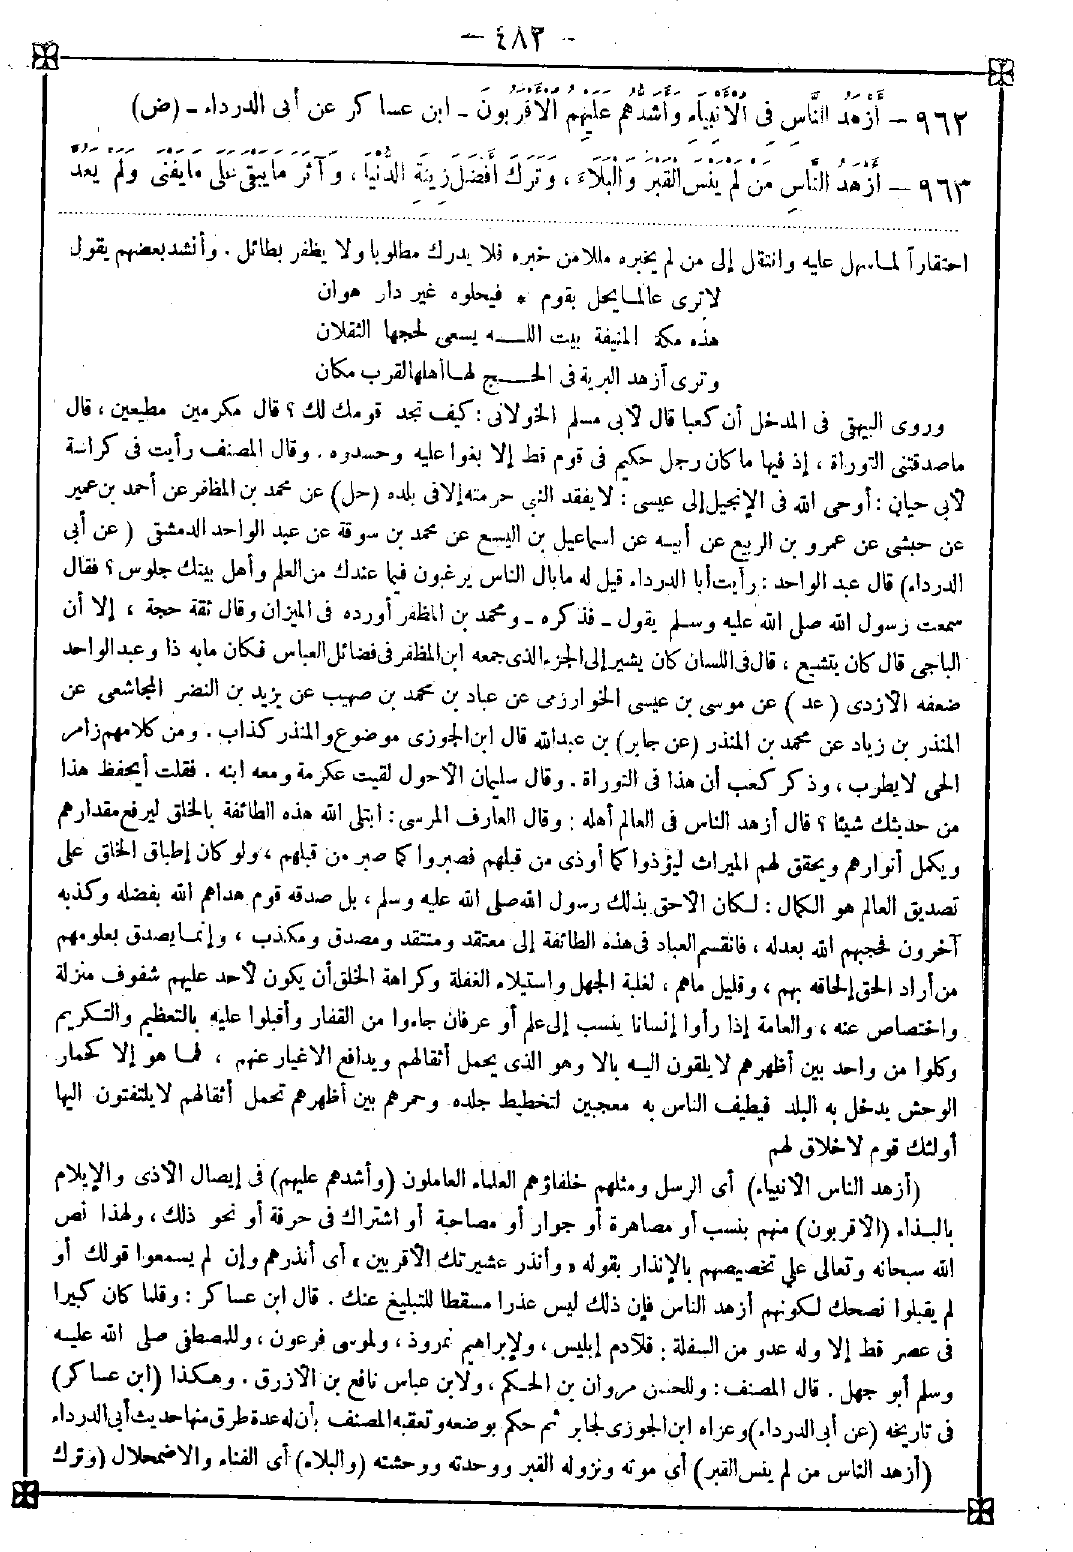 - ٤٨٣ -
٩٦٢ - أَزْهَدُ النَّاسِ فِى الْأَنْبِيَاءِ وَأَشَدُّهُمْ عَلَيْهِمُ الْأَقْرَبُونَ - ابن عساكر عن أبى الدرداء - (ض)
٩٦٣ - أَزْهَدُ النَّاسِ مَنْ لَمْ يَنْسَ الْقَبْرَ وَالْبَلَاءَ، وَتَرَكَ أَفْضَلَ زِينَةِ الدُّنْيَا، وَآثَرَ مَا يَبْقَى عَلَى مَا يَفْنَى وَلَمْ يَعُدَّ
احتقاراً لما سهل عليه وانتقل إلى من لم يخبره مللا من خبره فلا يدرك مطلوبا ولا يظفر بطائل . وأنشد بعضهم يقول
لا ترى عالما يحل بقوم * فيحلوه غير دار هوان
هذه مكة المنيفة بيت اللـــه يسعى لحجها الثقلان
وترى أزهد البرية فى الحـــج لها أهلها القرب مكان
وروى البيهقى فى المدخل أن كعبا قال لأبى مسلم الخولانى : كيف تجد قومك لك ؟ قال مكرمين مطيعين ، قال
ما صدقتنى التوراة ، إذ فيها ما كان رجل حكيم فى قوم قط إلا بغوا عليه وحسدوه . وقال المصنف رأيت فى كراسة
لأبى حيان : أوحى الله فى الإنجيل إلى عيسى : لا يفقد النبى حرمته إلا فى بلده (حل) عن محمد بن المظفر عن أحمد بن عمير
عن حبشى عن عمرو بن الربيع عن أبيه عن اسماعيل بن اليسع عن محمد بن سوقة عن عبد الواحد الدمشقى (عن أبى
الدرداء) قال عبد الواحد : رأيت أبا الدرداء قيل له ما بال الناس يرغبون فيما عندك من العلم وأهل بيتك جلوس ؟ فقال
سمعت رسول الله صلى الله عليه وسلم يقول - فذكره - ومحمد بن المظفر أورده فى الميزان وقال ثقة حجة ، إلا أن
الباجى قال كان يتشيع ، قال فى اللسان كان يشير إلى الجزء الذى جمعه ابن المظفر فى فضائل العباس فكان مابه ذا وعبد الواحد
ضعفه الأزدى (عد) عن موسى بن عيسى الخوارزمى عن عباد بن محمد بن صهيب عن يزيد بن النضر المجاشعى عن
المنذر بن زياد عن محمد بن المنذر (عن جابر) بن عبد الله قال ابن الجوزى موضوع والمنذر كذاب . ومن كلامهم زامر
الحى لا يطرب ، وذكر كعب أن هذا فى التوراة . وقال سليمان الأحول لقيت عكرمة ومعه ابنه . فقلت أيحفظ هذا
من حديثك شيئا ؟ قال أزهد الناس فى العالم أهله : وقال العارف المرسى : ابتلى الله هذه الطائفة بالخلق ليرفع مقدارهم
ويكمل أنوارهم ويحقق لهم الميراث ليؤذوا كما أوذى من قبلهم فصبروا كما صبر من قبلهم ، ولو كان إطباق الخلق على
تصديق العالم هو الكمال : لكان الأحق بذلك رسول الله صلى الله عليه وسلم ، بل صدقه قوم هداهم الله بفضله وكذبه
آخرون فحجبهم الله بعدله ، فانقسم العباد فى هذه الطائفة إلى معتقد ومنتقد ومصدق ومكذب ، وإنما يصدق بعلومهم
من أراد الحق إلحاقه بهم ، وقليل ماهم ، لغلبة الجهل واستيلاء الغفلة وكراهة الخلق أن يكون لأحد عليهم شفوف منزلة
واختصاص عنه ، والعامة إذا رأوا إنسانا ينسب إلى علم أو عرفان جاءوا من القفار وأقبلوا عليه بالتعظيم والتكريم
وكلوا من واحد بين أظهرهم لا يلقون اليه بالا وهو الذى يحمل أثقالهم ويدافع الاغيار عنهم ، فما هو إلا كحمار
الوحش يدخل به البلد فيطيف الناس به معجبين لتخطيط جلده وحمرهم بين أظهرهم تحمل أثقالهم لا يلتفتون اليها
أولئك قوم لا خلاق لهم
(أزهد الناس الأنبياء) أى الرسل ومثلهم خلفاؤهم العلماء العاملون (وأشدهم عليهم) فى إيصال الأذى والإيلام
بالبذاء (الأقربون) منهم بنسب أو مصاهرة أو جوار أو مصاحبة أو اشتراك فى حرفة أو نحو ذلك ، ولهذا نص
الله سبحانه وتعالى على تخصيصهم بالإنذار بقوله « وأنذر عشيرتك الأقربين » أى أنذرهم وإن لم يسمعوا قولك أو
لم يقبلوا نصحك لكونهم أزهد الناس فإن ذلك ليس عذرا مسقطا للتبليغ عنك . قال ابن عساكر : وقلما كان كبيرا
فى عصر قط إلا وله عدو من السفلة : فلآدم إبليس ، ولإبراهيم نمروذ ، ولموسى فرعون ، وللمصطفى صلى الله عليه
وسلم أبو جهل . قال المصنف : وللحسن مروان بن الحكم ، ولابن عباس نافع بن الأزرق . وهكذا (ابن عساكر)
فى تاريخه (عن أبى الدرداء) وعزاه ابن الجوزى لجابر ثم حكم بوضعه وتعقبه المصنف بأن له عدة طرق منها حديث أبى الدرداء
(أزهد الناس من لم ينس القبر) أى موته ونزوله القبر ووحدته ووحشته (والبلاء) أى الفناء والاضمحلال (وترك